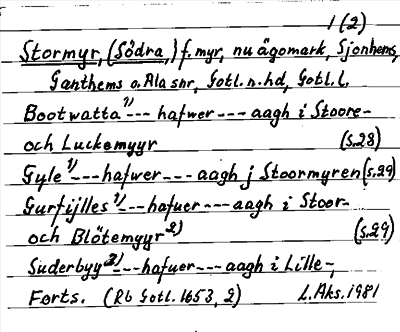 1(2)
Stormyr, (Södra,) f. myr, nu ägomark, Sjonhems,
Ganthems o. Ala snr, Gotl. n. hd, Gotl. l.
Bootwatta 1) --- hafwer --- aagh i Stoore-
och Luckemyyr (s.28)
Gyle 1) --- hafwer --- aagh j Stoormyren (s.29)
Gurfijlles 1) --- hafuer --- aagh i Stoor-
och Blötemyyr 2) (s.29)
Suderbyy 2) --- hafuer --- aagh i Lille-,
Forts. (Rb Gotl. 1653, 2) L. Aks. 1981